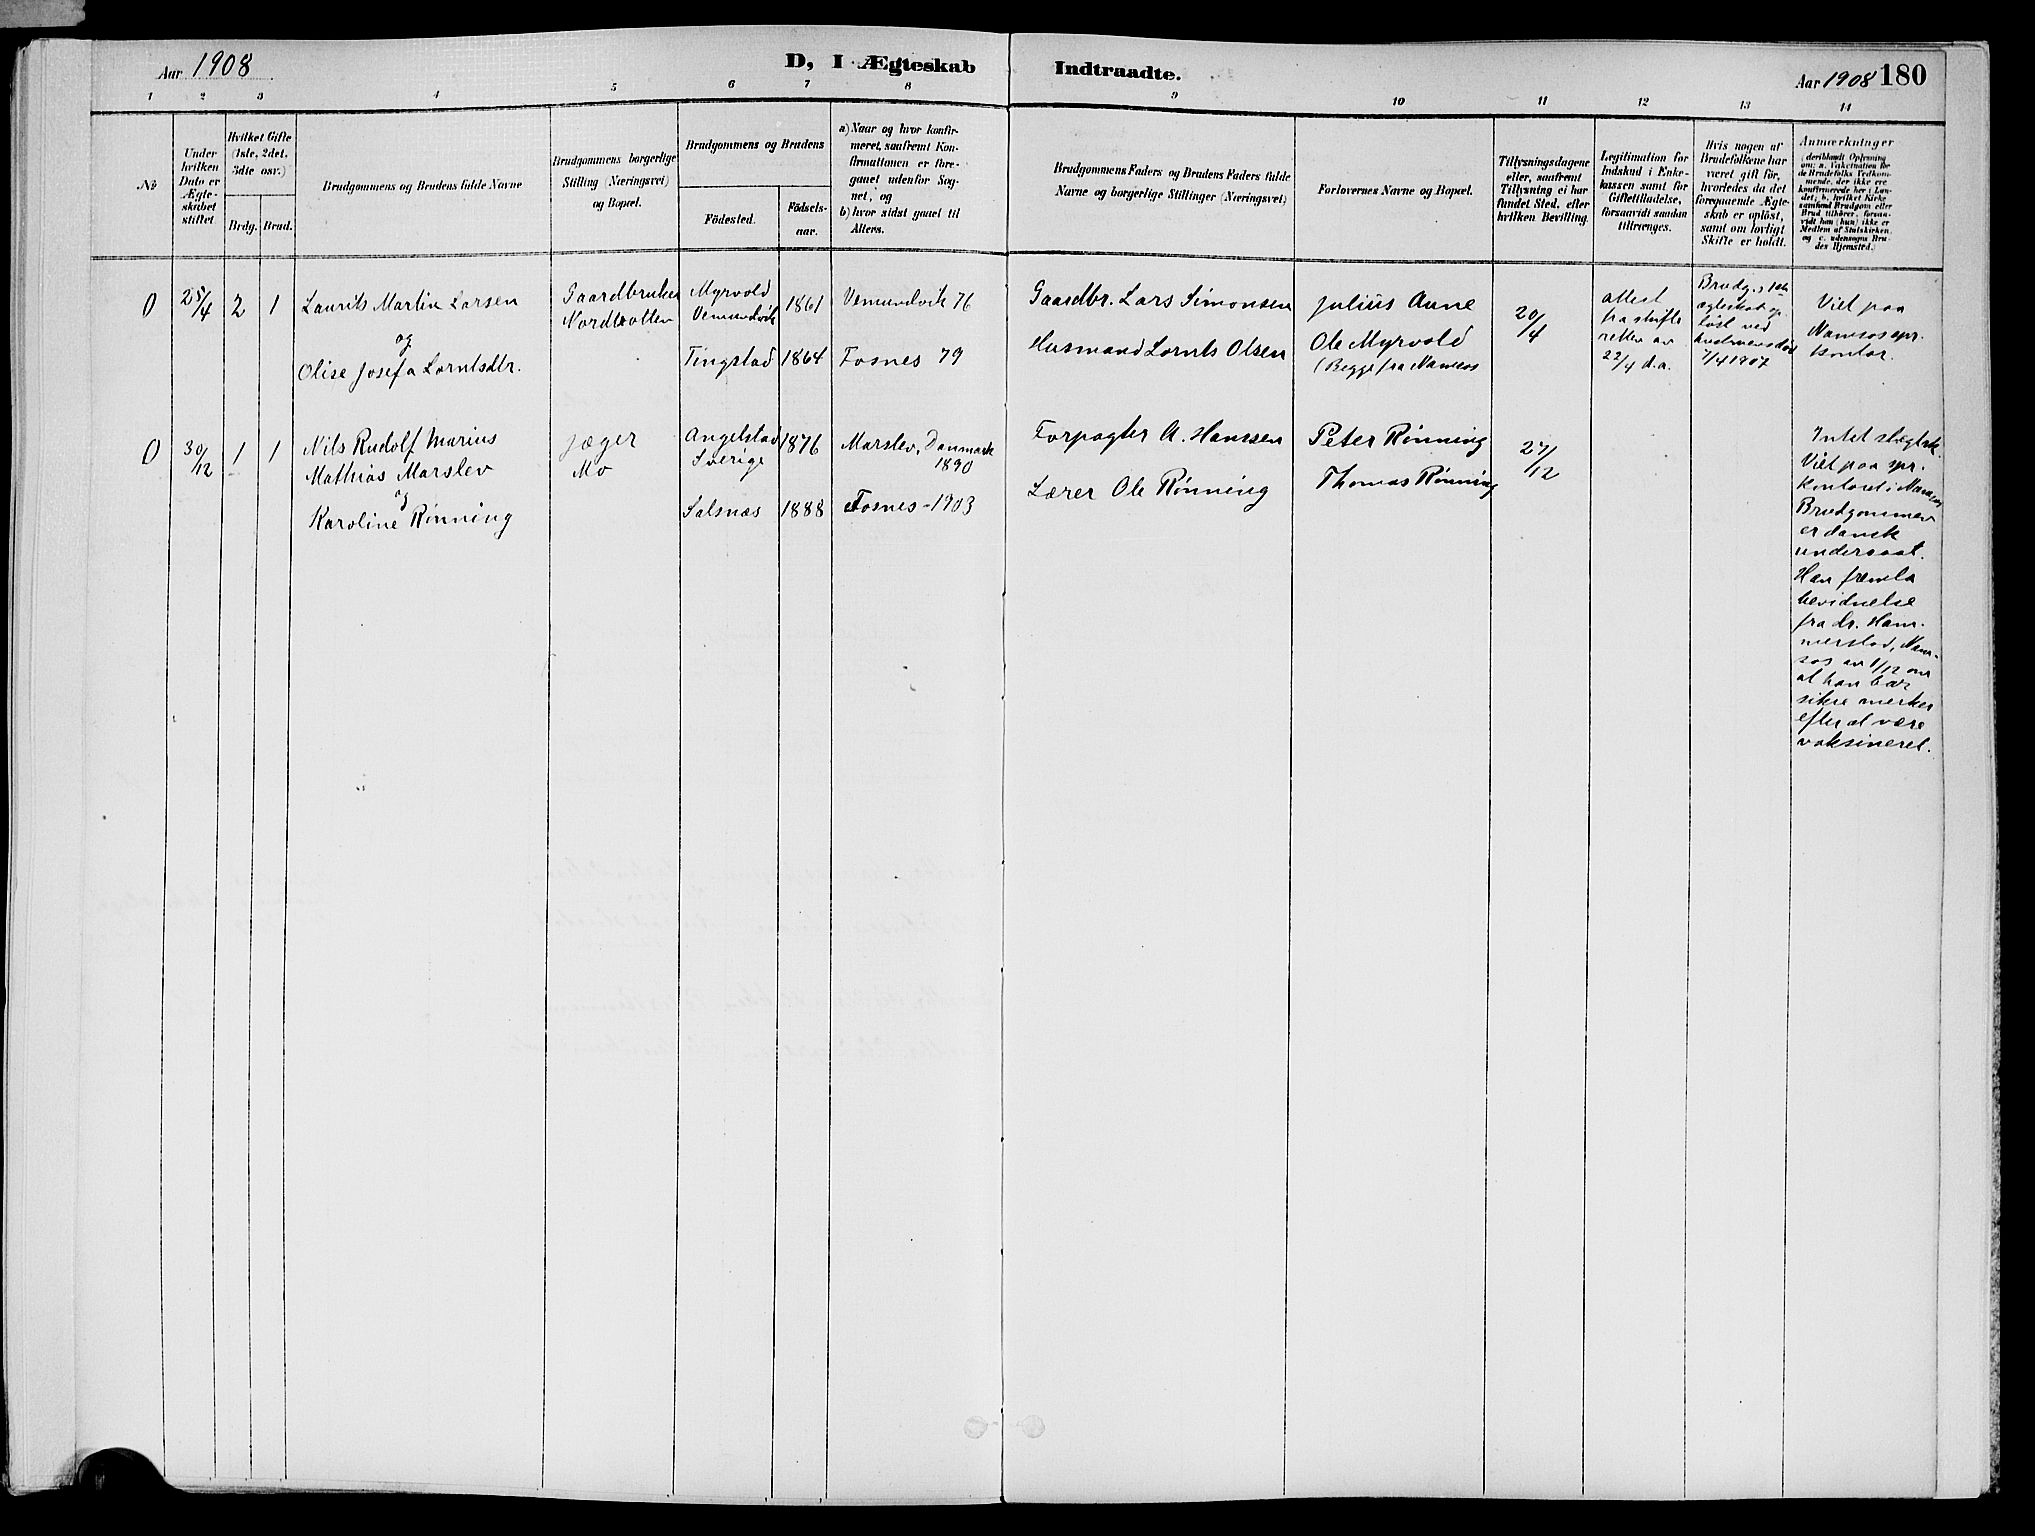 Aar 1908
D, I Ægteskab Indtraadte.
Aar 1908 180
1 2 3 4 5 6 7 8 9 10 11 12 13 14
No
Under
hvilken
Dato er
Ægte-
skabet
stiftet.
Hvilket Gifte
(1ste, 2det,
3dte osv.)
Brdg. Brud.
Brudgommens og Brudens fulde Navne
Brudgommens borgerlige
Stilling (Næringsvei)
og Bopæl.
Brudgommens og Brudens
Födested.
Födsels-
aar.
a) Naar og hvor konfir-
meret, saafremt Kon-
firmationen er fore-
gaaet udenfor Sog-
net, og
b) hvor sidst gaaet til
Alters.
Brudgommens Faders og Brudens Faders fulde
Navne og borgerlige Stillinger (Næringsvei)
Forlovernes Navne og Bopæl.
Tillysningsdagene
eller, saafremt
Tillysning ei har
fundet Sted, efter
hvilken Bevilling.
Legitimation for
Indskud i Enke-
kassen samt for
Giftetilladelse,
forsaavidt saadan
tiltrænges.
Hvis nogen af
Brudefolkene har
været gift før,
hvorledes da det
foregaaende Ægte-
skab er oplöst,
samt om lovligt
Skifte er holdt.
Anmærkninger
(deriblandt Oplysning
om: a. Vakcination for
de Brudefolks Vedkom-
mende, der ikke ere
konfirmerede her i Lan-
det; b. hvilket Kirke
samfund Brudgom eller
Brud tilhører, forsaa-
vidt han (hun) ikke er
Medlem af Statskirken,
og c. udensogns Bru-
des Hjemsted.)
0 25/4 2 1
Laurits Martin Larsen
og
Olise Josefa Lorntsdtr.
Gaardbruker
Nordtrotten
Myrvold
Vemundvik
1861
Vemundvik 76
Tingstad 1864 Fosnes 79
Gaardbr. Lars Simonsen
Husmand Lornts Olsen
Julius Aune
Ole Myrvold
(Begge fra Namsos
20/4
attest
fra skifte
retten av
22/4 d.a.
Brudg.s 1ste
egteskab op
løst ved
kvinnens død
7/4 1907
Viet paa
Namsos spr.
kontor.
0 30/12 1 1
Nils Rudolf Marius
Mathias Marslev
og
Karoline Rønning
Jæger
Mo
Angelstad
Sverige
1876
Marslev, Danmark
1890
Salsnæs 1888 Fosnes - 1903
Forpagter A. Hanssen
Lærer Ole Rønning
Peter Rønning
Thomas Rønning
27/12
Intet slegtsk.
Viet paa spr.
kontoret i Namsos
Brudgommen
er dansk
undersaat.
Han fremla
bevidnelse
fra dr. Ham-
merstad, Nam-
sos av 1/12 om
at han bær
sikre merker
efter at være
vaksineret.